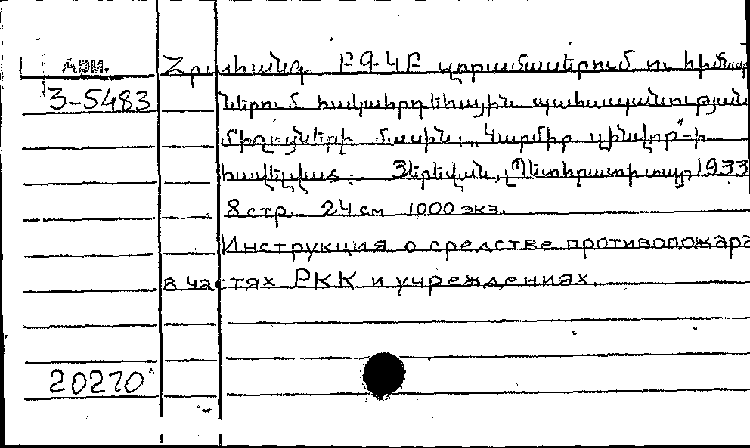 Арм.
Հրահանգ ԲԳԿԲ զորամասերում ու հիմնարկ
3-5483
ներում հակահրդեհային պահպանության
միջոցների մասին: „Կարմիր զինվոր"-ի
հավելված. Յերեվան, Պետհրատի տպ 1933
8 стр. 24 см 1000 экз.
Инструкция о средстве противопожара
в частях РКК и учреждениях.
20270